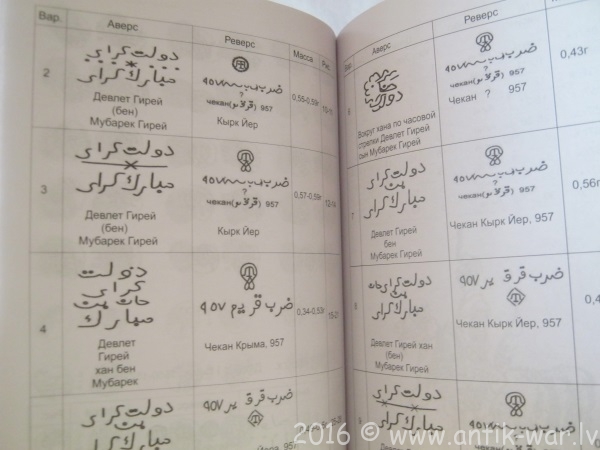 Вар. Аверс Реверс Масса Рис.
2
دولت كراى
مبارك كراى
Девлет Гирей
(бен)
Мубарек Гирей
?
чекан( ) 957
Кырк Йер
0,55-0,59г
3
دولت كراى
مبارك كراى
Девлет Гирей
(бен)
Мубарек Гирей
?
чекан( ) 957
Кырк Йер
0,57-0,59г
4
دولت
كراى
خان بن
مبارك
Девлет
Гирей
хан бен
Мубарек
ضرب قريم ٩٥٧
Чекан Крыма, 957
0,34-0,53г
دولت كراى
مبارك كراى
ضرب قرق ير ٩٥٧
Вар. Аверс Реверс
Вокруг хана по часовой
стрелки Девлет Гирей
сын Мубарек Гирей
?
чекан( ) 957
Чекан ? 957
0,43г
7
دولت كراى
بن
مبارك كراى
Девлет Гирей
бен
Мубарек Гирей
?
чекан( ) 957
Чекан Кырк Йер, 957
0,56г
دولت كراى خان
بن
مبارك كراى
Девлет Гирей хан
(бен)
Мубарек Гирей
ضرب قرق ير ٩٥٧
Чекан Кырк Йер, 957
0,4
دولت كراى
مبارك كراى
2016 © www.antik-war.lv